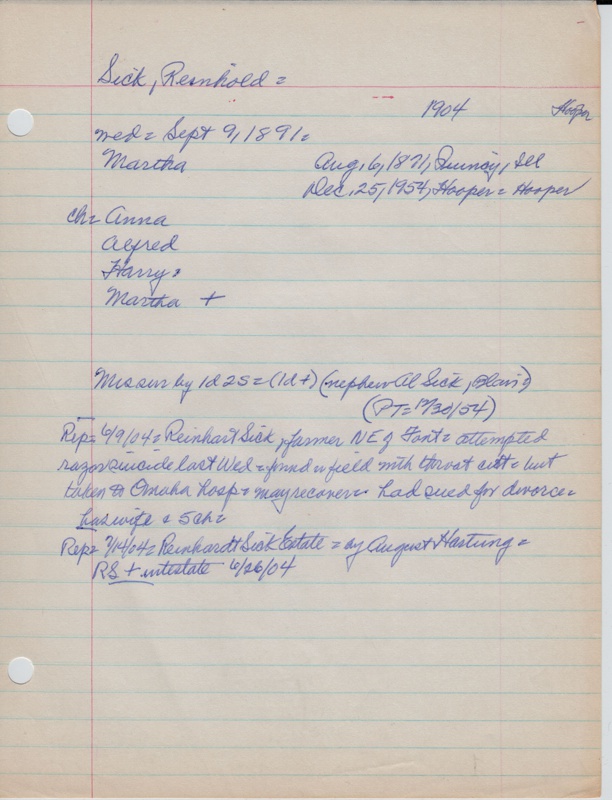 Sick, Reinhold =
1904 Hooper
wed = Sept 9, 1891 =
Martha Aug. 6, 1871, Quincy, Ill
Dec. 25, 1954, Hooper = Hooper
ch = Anna
Alfred
Harry
Martha +
by 1d 2s = (1d+) (nephew Al Sick, Blair)
(PT = 12/30/54)
Rep = 6/9/04 = Reinhart Sick, farmer NE of Font = attempted
razor suicide last Wed = found in field with throat cutt = but
taken to Omaha hosp = may recover = had sued for divorce =
has wife & 5 ch =
Rep = 7/14/04 = Reinhardt Sick Estate = by August Hastung =
RS + intestate 6/26/04